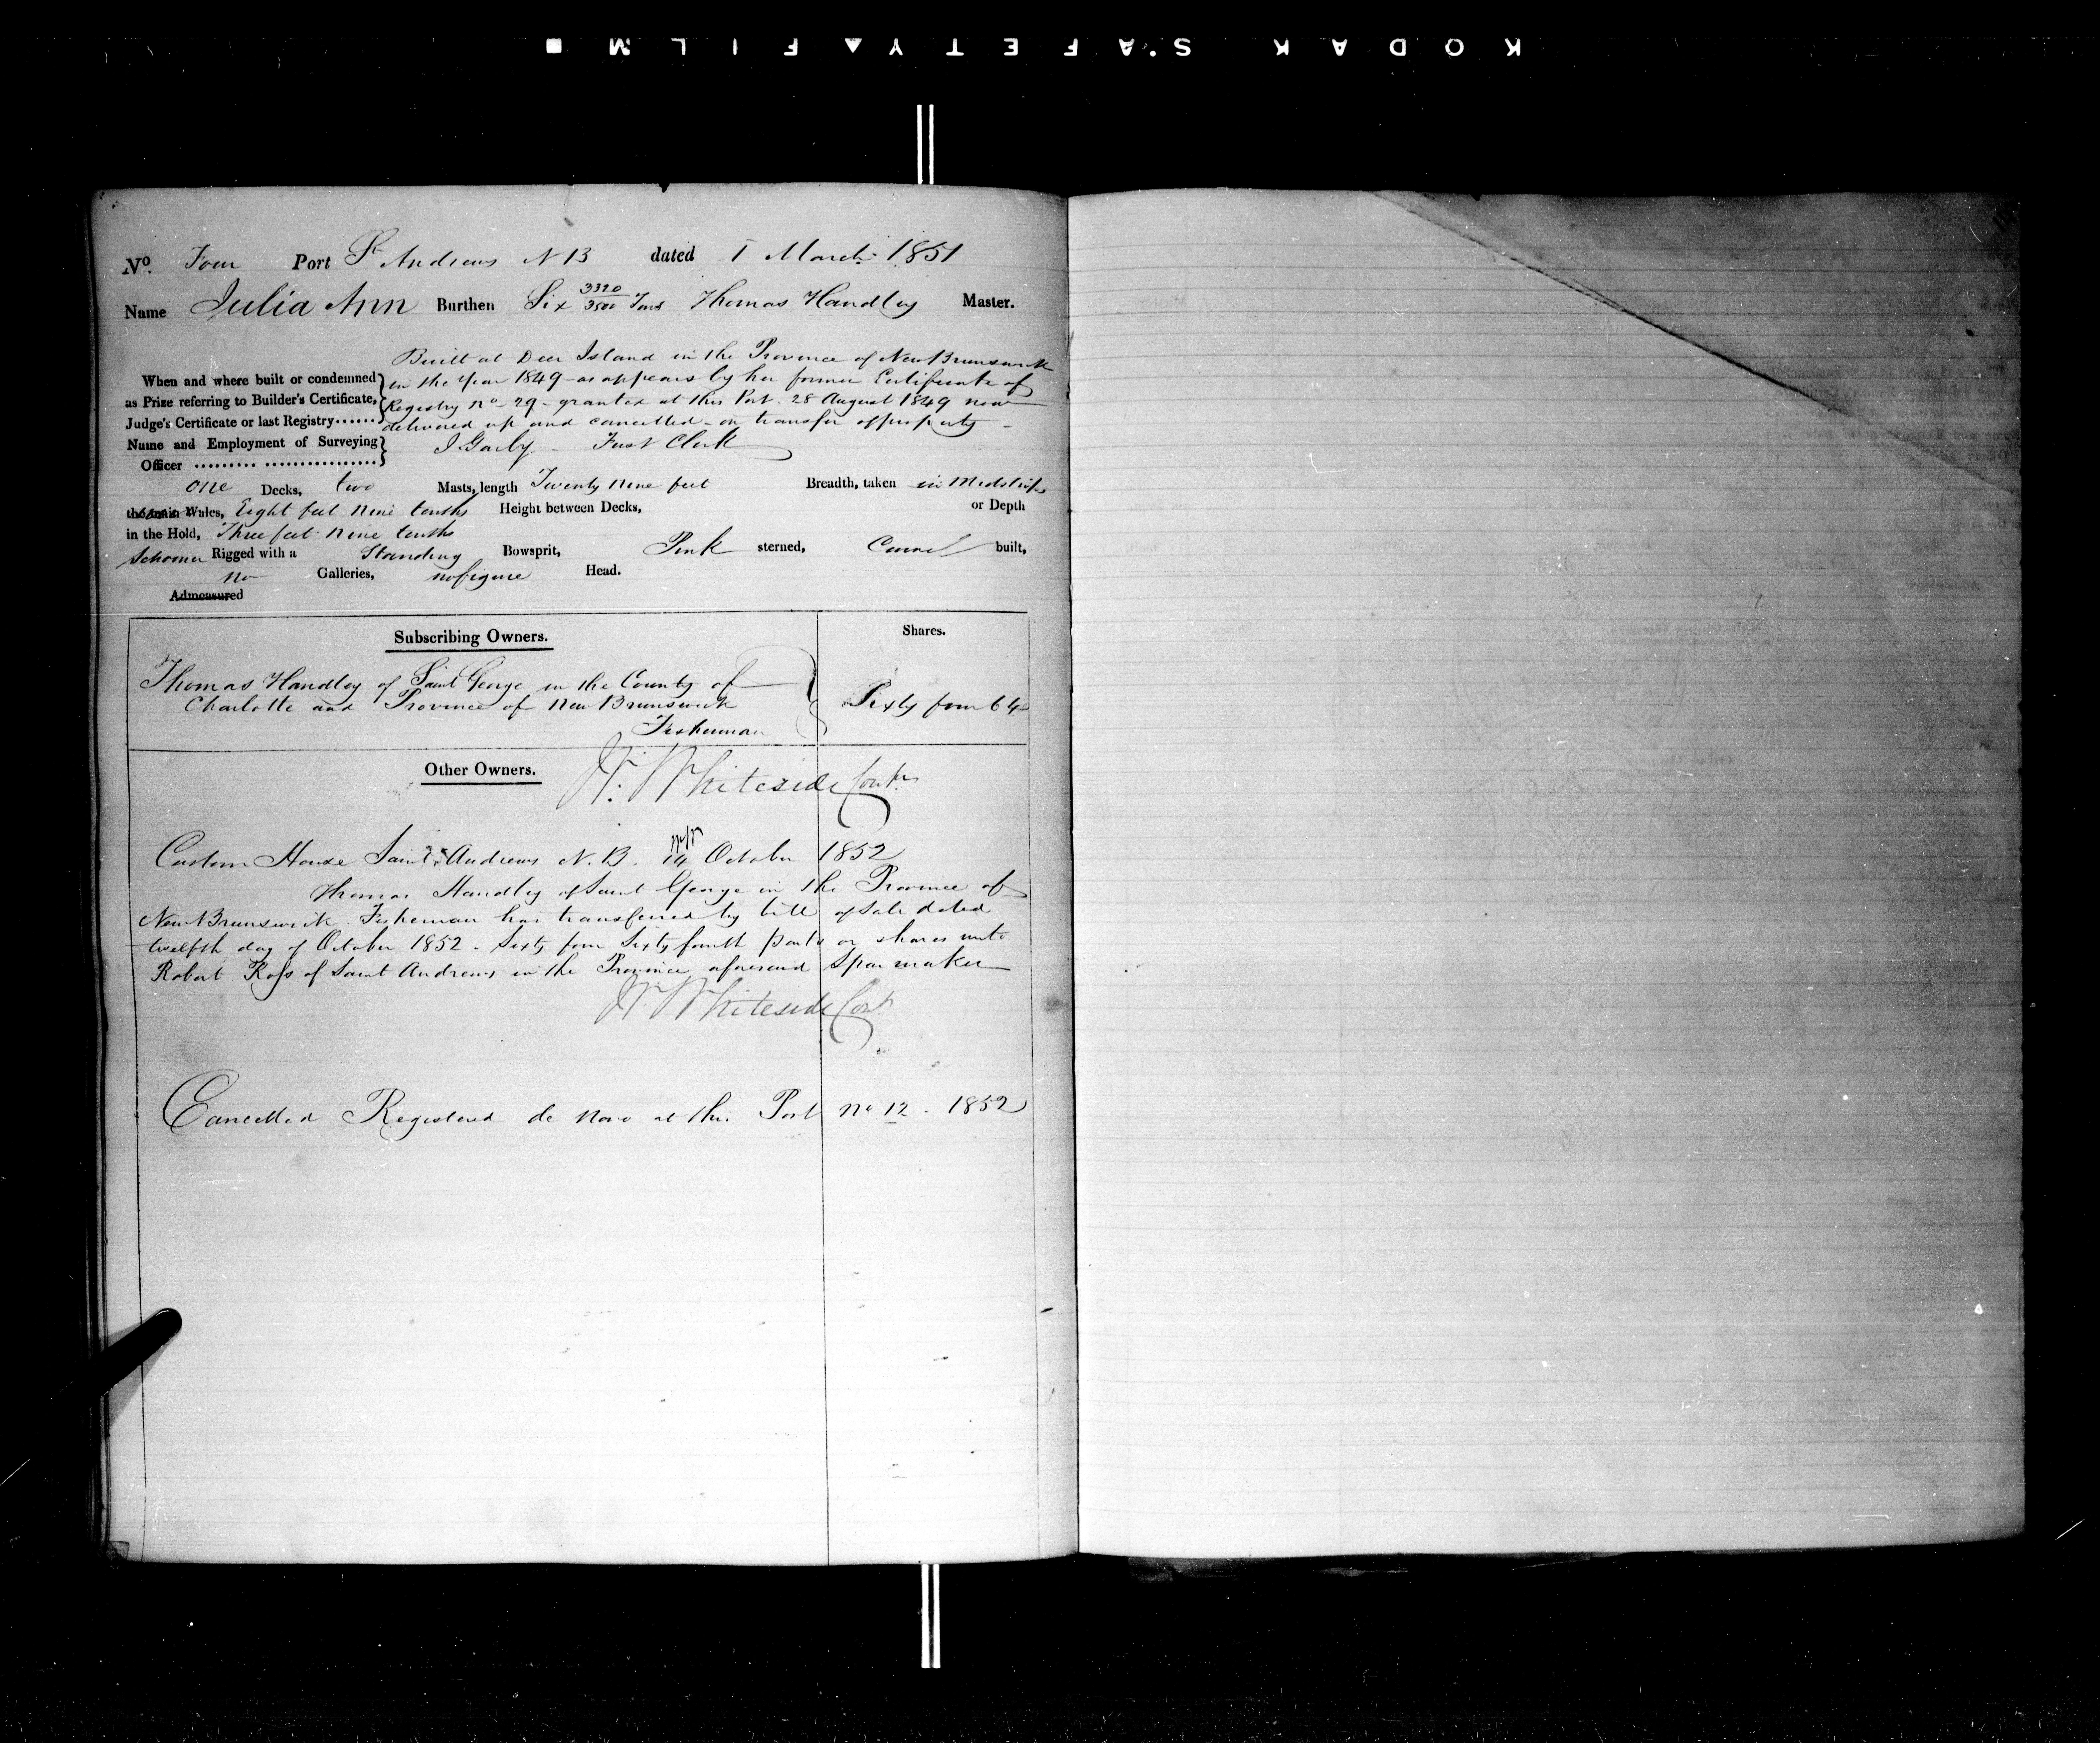 KODAK SAFETY FILM
No. Four Port St Andrews NB dated 1 March 1851
Name Julia Ann Burthen Six 3320/3500 Tons Thomas Handley Master.
Built at Deer Island in the Province of New Brunswick
When and where built or condemned in the Year 1849 as appears by her former Certificate of
as Prize referring to Builder's Certificate, Registry no 29 granted at this Port 28 August 1849 now
Judge's Certificate or last Registry delivered up and cancelled on transfer of property
Name and Employment of Surveying First Clerk
Officer
one Decks, two Masts, length Twenty nine feet Breadth, taken in Midships
Wales, Eight feet nine tenths Height between Decks, or Depth
in the Hold, Three feet nine tenths
Schooner Rigged with a Standing Bowsprit, Pink sterned, Carvel built,
no Galleries, no figure Head.
Admeasured
Subscribing Owners. Shares.
Thomas Handley of Saint George in the County of
Charlotte and Province of New Brunswick Sixty four 64
Fisherman
Other Owners. W. Whiteside Contr
Custom House Saint Andrews N.B. 14 October 1852
Thomas Handley of Saint George in the Province of
New Brunswick Fisherman has transferred by bill of Sale dated
twelfth day of October 1852 Sixty four Sixty fourth parts or shares unto
Robert Ross of Saint Andrews in the Province aforesaid Spar maker
W. Whiteside Contr
Cancelled Registered de novo at this Port no 12 - 1852